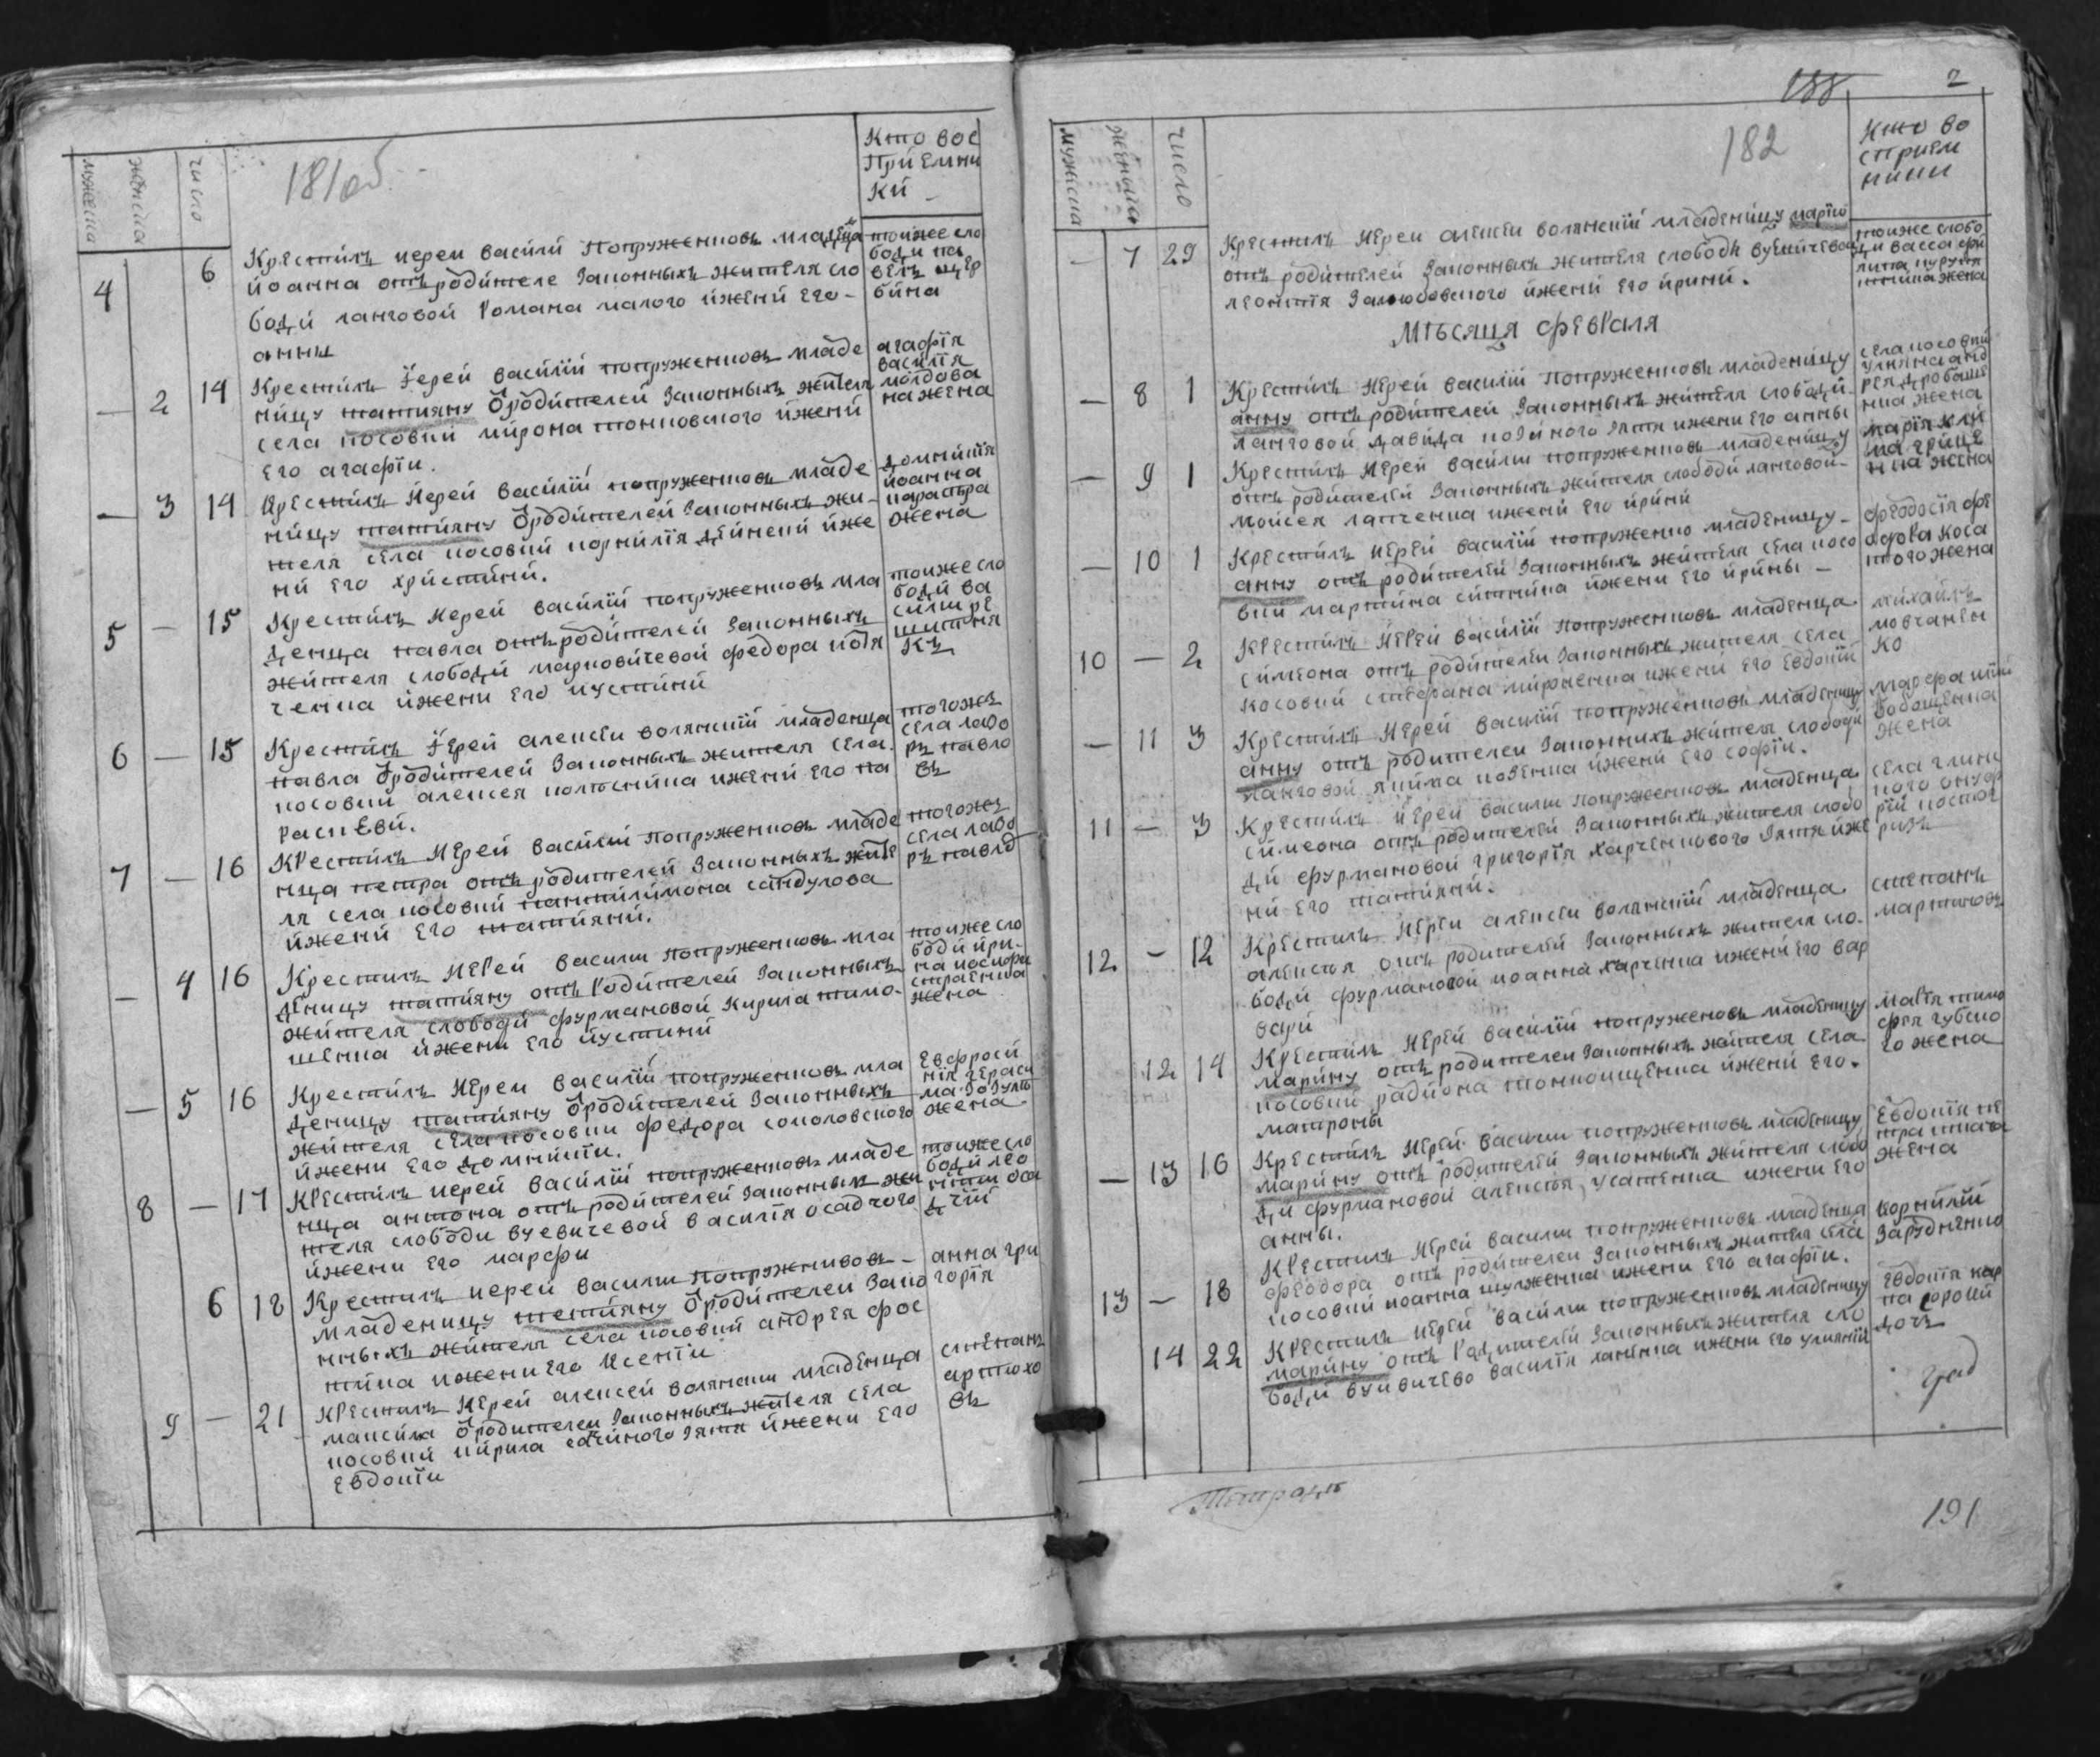 181об
мужеска
женска
число
Кто вос
прйемни
ки
4 6 Крестилъ иереи василй Попруженковъ младенца
иоанна отъ родителе Законныхъ жителя сло
боди ланговой Романа малого йжени Его
анны
тоиже сло
боди па
велъ щер
бина
— 2 14 Крестилъ Іерей василїй попруженковъ младе
ницу татияну Ѿродителей Законныхъ жителя
села косовки мирона тонковского йжени
Его агафїи.
агафїя
василїя
молдова
на жена
— 3 14 Крестилъ Иерей василїй попруженковъ младе
ницу татияну Ѿродителей Законныхъ жи
теля села косовки корнилїя дейнеки йже
ни Его христини.
домникїя
йоанна
жена
5 — 15 Крестилъ Иерей василїй попруженковъ мла
денца павла отъ родителей Законныхъ
жителя слободи марковичевой федора котя
ченка йжени Его иустини
тоиже сло
боди ва
силии ре
шитня
къ
6 — 15 Крестилъ Іерей алексеи волянскїй младенца
павла Ѿродителей Законныхъ жителя села
косовки алексея колосника ижени Его па
раскеви.
тогожъ
села лаво
ръ павло
въ
7 — 16 Крестилъ Иерей василїй попруженковъ младе
нца петра отъ родителей Законныхъ жите
ля села косовки пантилимона сандулова
йжени Его татияни.
тогожъ
села лаво
ръ павло
— 4 16 Крестилъ Иерей василии попруженковъ мла
деницу татияну отъ Родителей Законныхъ
жителя слободи фурмановой Кирила тимо
шенка йжени Его йустини
тоиже сло
боди йри
на иосифа
жена
— 5 16 Крестилъ Иереи василїй попруженковъ мла
деницу татияну Ѿродителей Законныхъ
жителя села косовки федора соколовского
йжени Его домникїи.
Евфроси
нїя гераси
ма
жена
8 — 17 Крестилъ иерей василїй попруженковъ младе
нца антона отъ родителей Законныхъ жи
теля слободи вуевичевой василїя осадчого
йжени Его марфи
тоиже сло
боди лео
нтїи оса
дчїй
6 18 Крестилъ иерей василии попруженковъ
младеницу тетияну Ѿродителеи Зако
нныхъ жителя села косовки андрея фос
тика ижени Его Ксенїи
анна гри
горїя
9 — 21 Крестилъ Иерей алексей волянскии младенца
максима Ѿродителеи Законныхъ жителя села
косовки кирила
зятя йжени Его
Евдокїи
степанъ
артюхо
въ
188
2
182
мужеска
женьска
число
Кто во
сприем
ники
— 7 29 Крестилъ Иереи алексеи волянский младеницу марїю
отъ родителей Законныхъ жителя слободи вуевичевой
леонтїя Залюбовского йжени Его йрини.
тоиже слобо
ди васса фи
липа
жена
Мѣсяца феврала
— 8 1 Крестилъ Иерей василїй Попруженковъ младеницу
анну отъ родителей Законныхъ жителя слободи
ланговой давида
зятя ижени Его анны
села косовки
улияна анд
рея дробаше
нка жена
— 9 1 Крестилъ Иерей василии попруженковъ младеницу
отъ родителей Законныхъ жителя слободи ланговой
моисея лапченка ижени Его йрини
марїя кли
ма грице
нка жена
— 10 1 Крестилъ иерей василїй попруженко младеницу
анну отъ родителей Законныхъ жителя села косо
вки мартина ситника йжени Его ирины
феодосїя фе
одора коса
того жена
10 — 2 Крестилъ Иерей василїй попруженковъ младенца
симеона отъ родителей Законныхъ жителя села
косовки стефана мироненка ижени Его Евдокїй
михайлъ
мовчанен
ко
— 11 3 Крестилъ Иерей василїй попруженковъ младеницу
анну отъ родителеи Законнихъ жителя слободи
ланговой якима козенка йжени Его софїи.
марфа
жена
11 — 3 Крестилъ Иерей василии попруженковъ младенца
симеона отъ родителей Законныхъ жителя слобо
ди фурмановой григорїя харченкового Зятя йже
ни Его татияни.
села глин
ного онуф
рїи
12 — 12 Крестилъ Иереи алексеи волянский младенца
алексѣя отъ родителей Законныхъ жителя сло
боди фурмановой иоанна харченка ижени Его вар
вари
степанъ
мартиновъ
12 14 Крестилъ Иерей василїй попруженовъ младеницу
марину отъ родителеи Законныхъ жителя села
косовки радиона тонкоищенка йжени Его
матрони
марїя тимо
фея губско
го жена
— 13 16 Крестилъ Иерей василии попруженковъ младеницу
марину отъ родителей Законныхъ жителя слобо
ди фурмановой алексѣя усатенка ижени Его
анны.
Евдокїя пе
тра
жена
13 — 18 Крестилъ Иерей василии попруженковъ младенца
феодора отъ родителеи Законныхъ жителя села
косовки иоанна шулженка ижени Его агафїи.
корнилїй
Зарудненко
14 22 Крестилъ иерей василии попруженковъ младеницу
марину отъ Родителей Законныхъ жителя сло
боди вуивичево василїя ланенка ижени Его улиянїи
Евдокїя кар
па сороки
дочъ
191